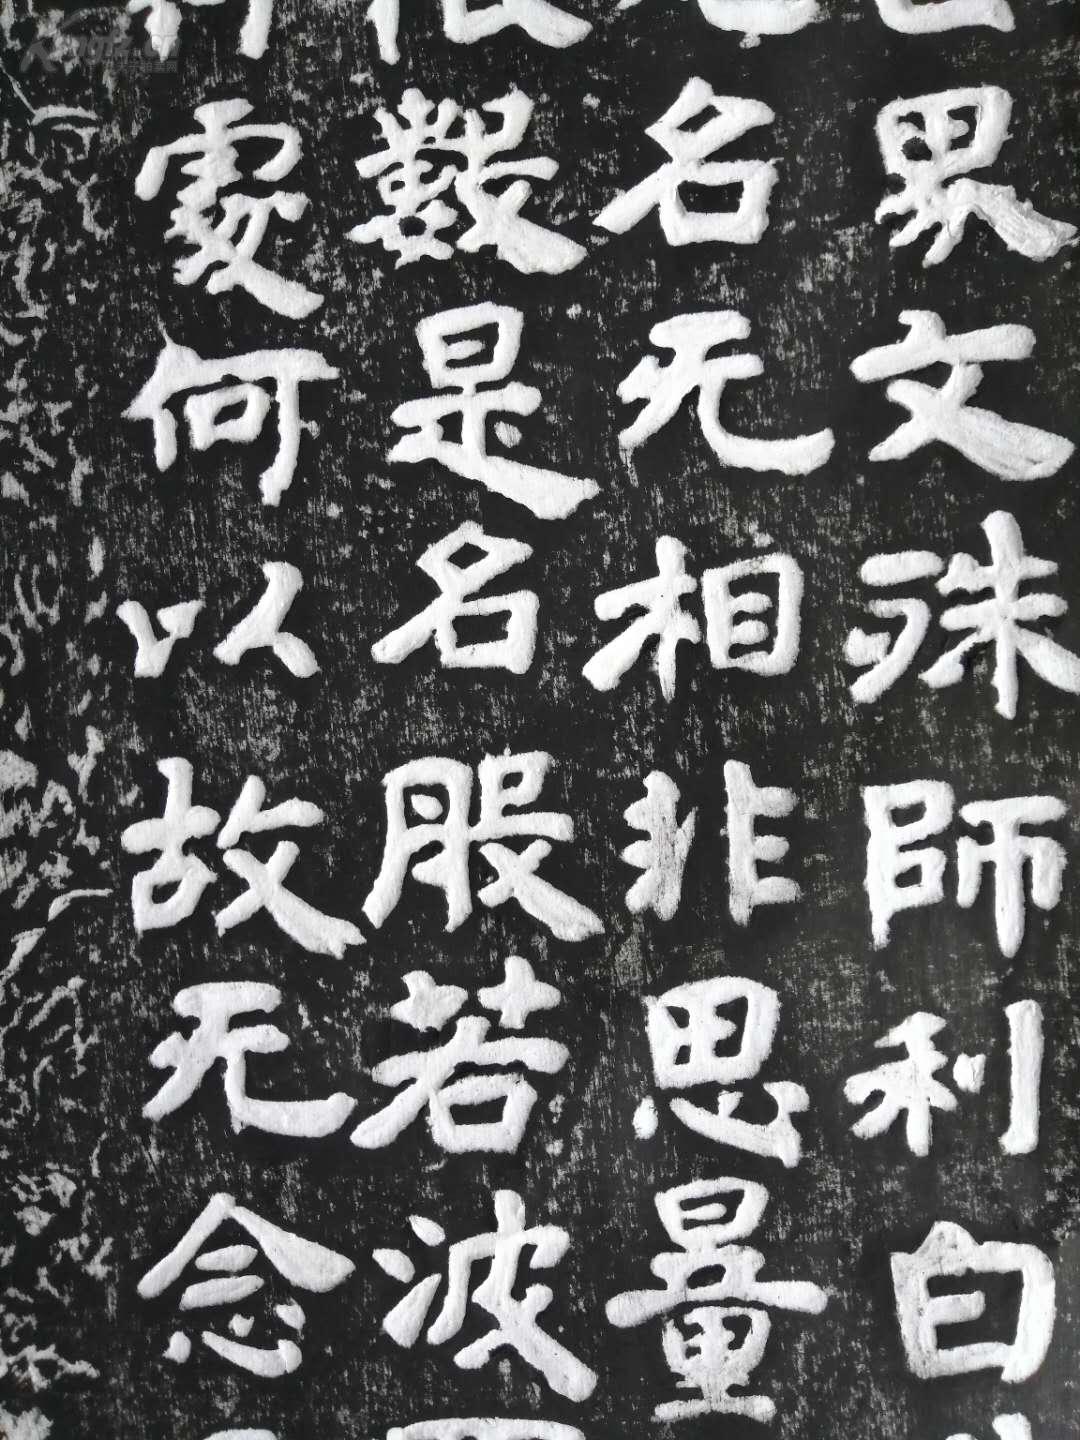 界文殊師利白
名无相非思量
數是名般若波
處何以故无念
Kongfz.cn